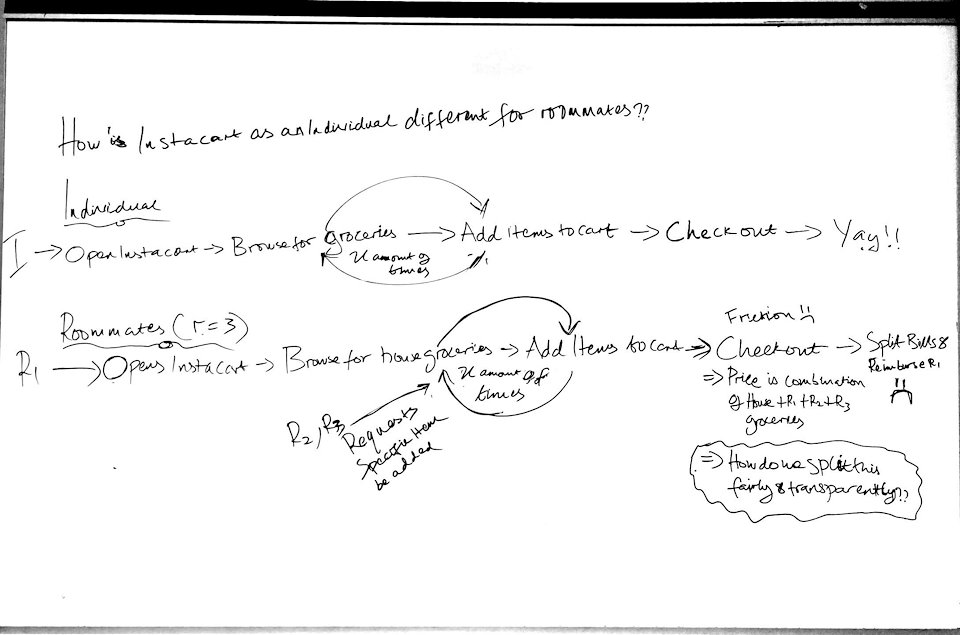 How is Instacart as an Individual different for roommates??
Individual
I → Open Instacart → Browse for groceries → Add items to cart → Checkout → Yay!!
X amount of
times
Roommates (r=3)
R1 → Opens Instacart → Browse for house groceries → Add Items to cart → Checkout → Split Bills &
Reimburse R1
X amount of
times
R2, R3
Requests
specific item
be added
Friction
⇒ Price is combination
of House + R1 + R2 + R3
groceries
⇒ How do we split this
fairly & transparently??